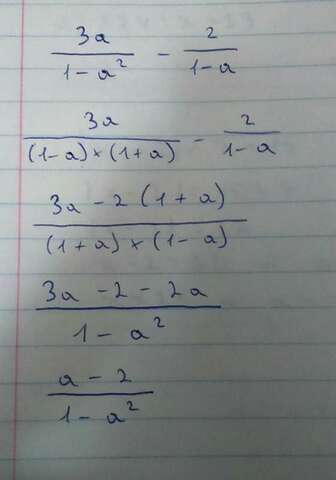 3a/(1-a²) - 2/(1-a)
3a/((1-a)×(1+a)) - 2/(1-a)
(3a-2(1+a))/((1+a)×(1-a))
(3a-2-2a)/(1-a²)
(a-2)/(1-a²)